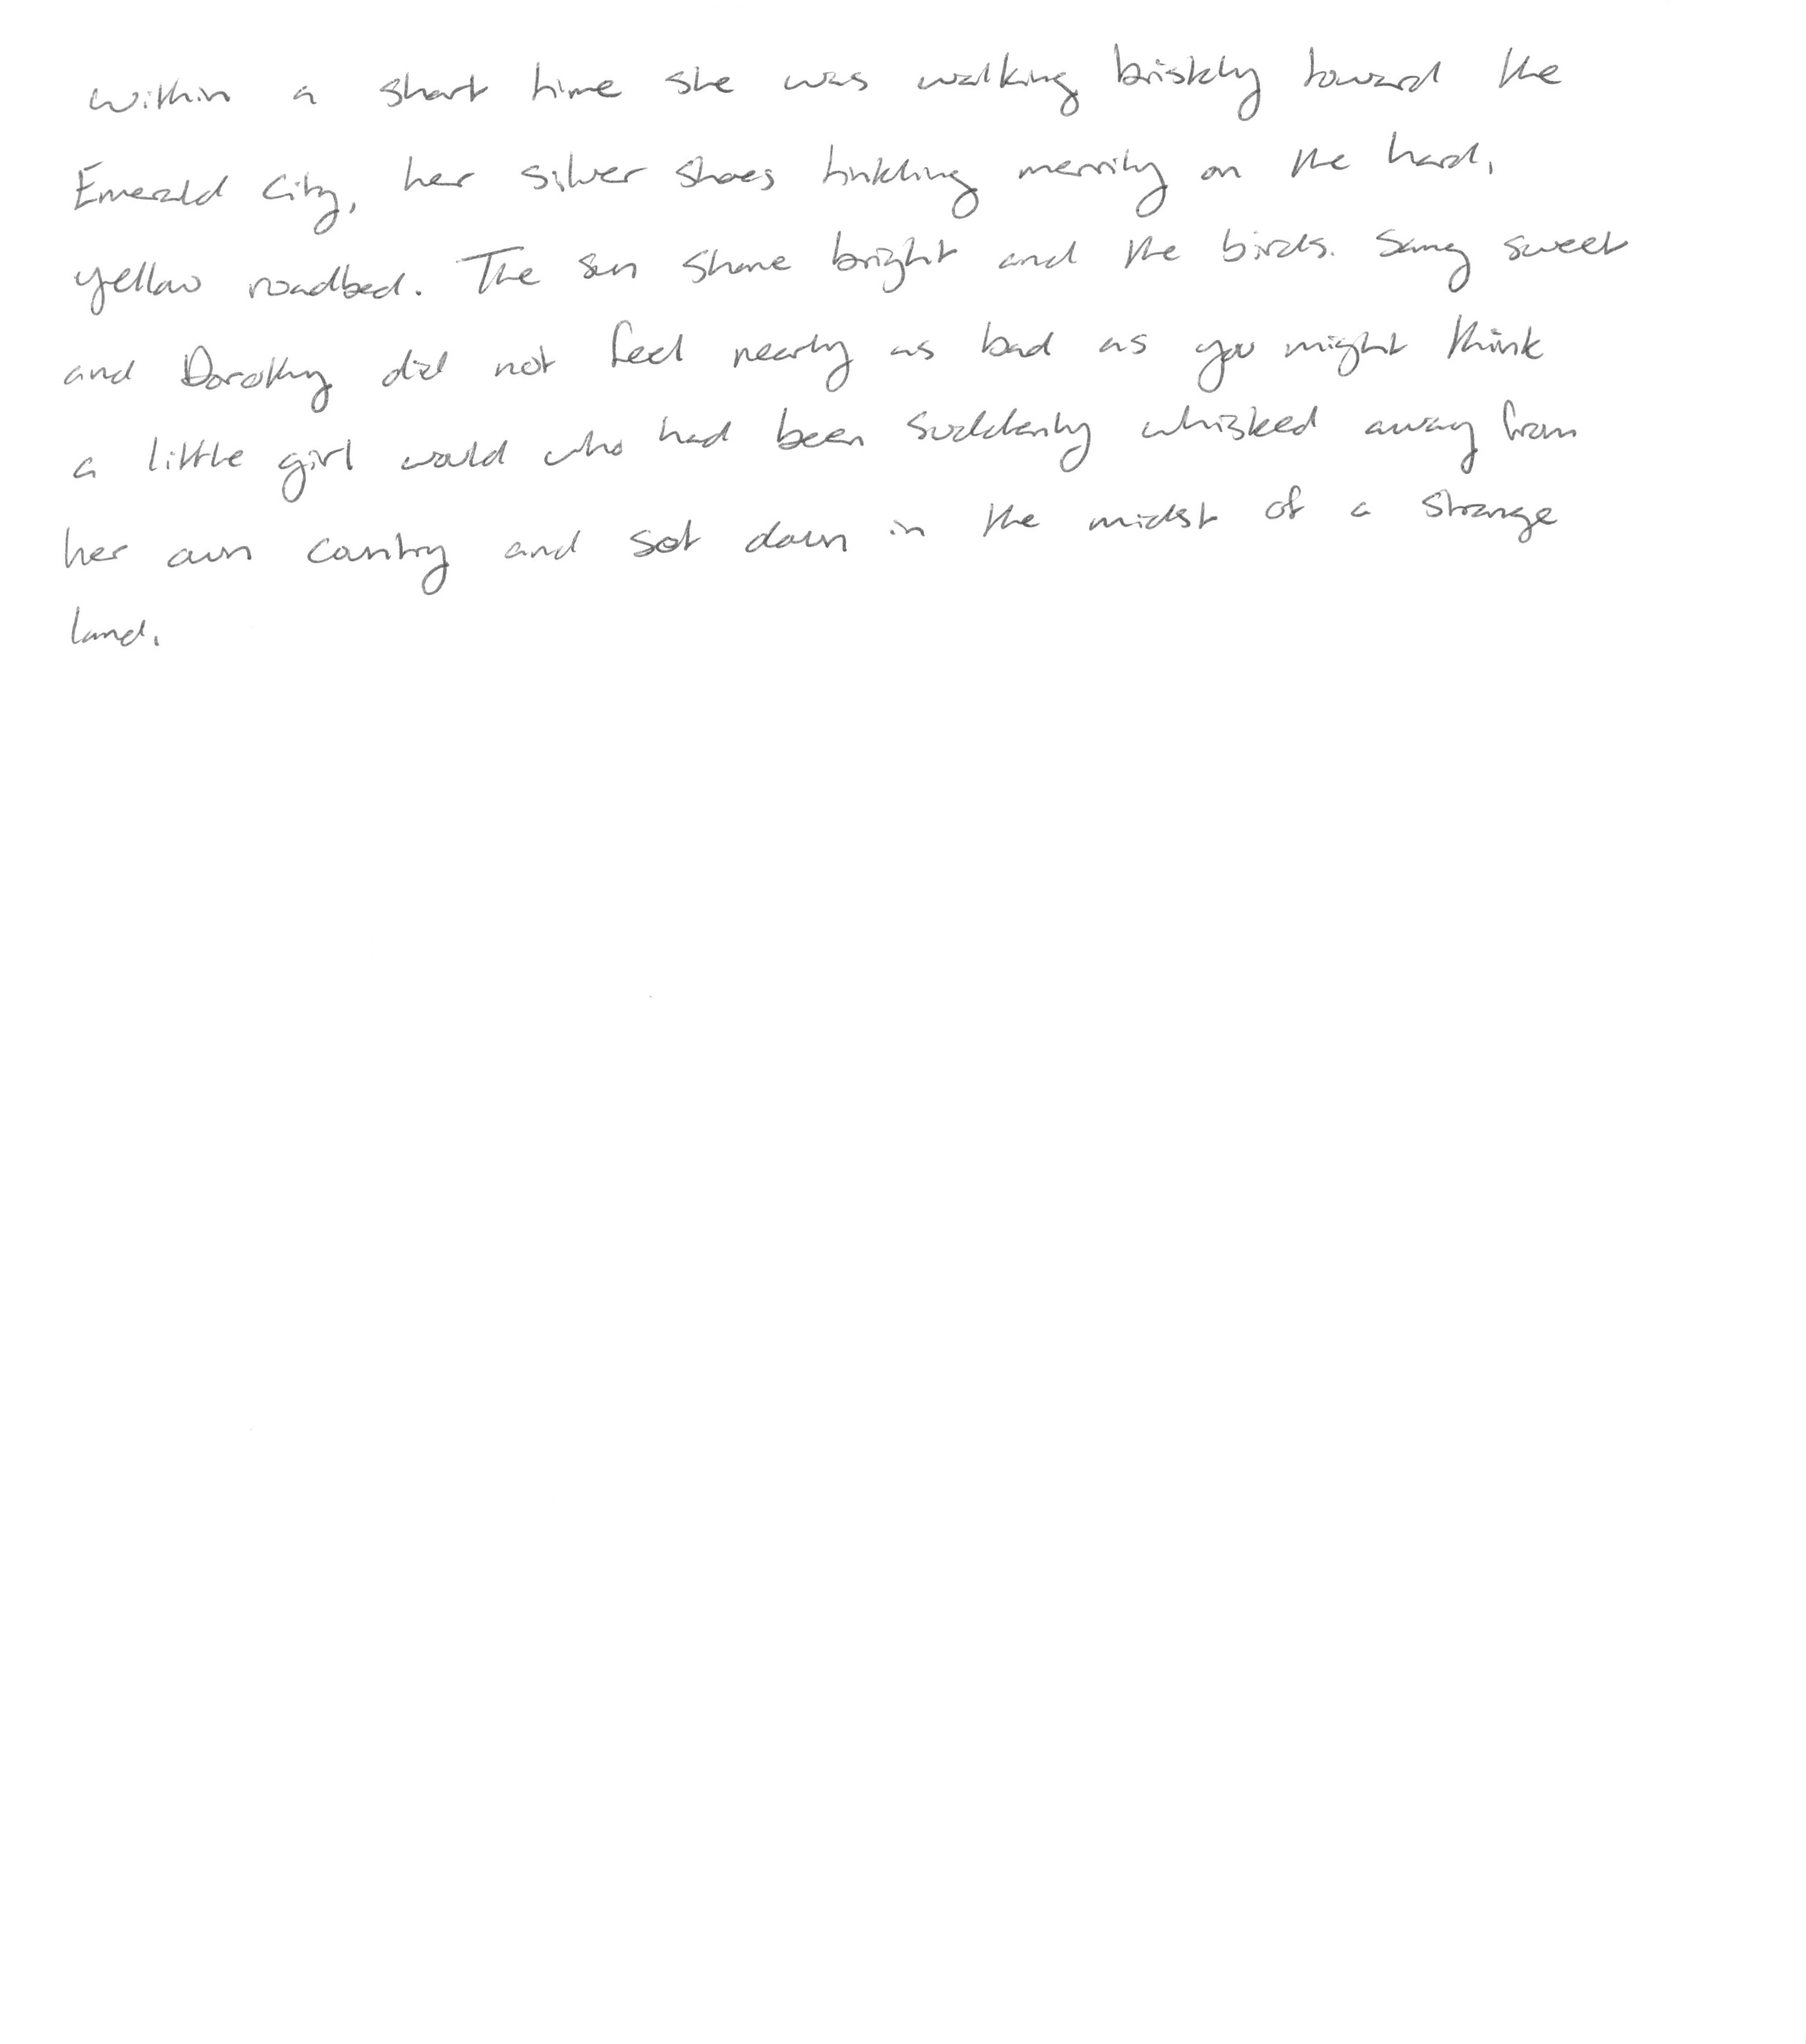 within a short time she was walking briskly toward the
Emerald City, her silver shoes tinkling merrily on the hard,
yellow roadbed. The sun shone bright and the birds. sang sweet
and Dorothy did not feel nearly as bad as you might think
a little girl would who had been suddenly whisked away from
her own country and set down in the midst of a strange
land.